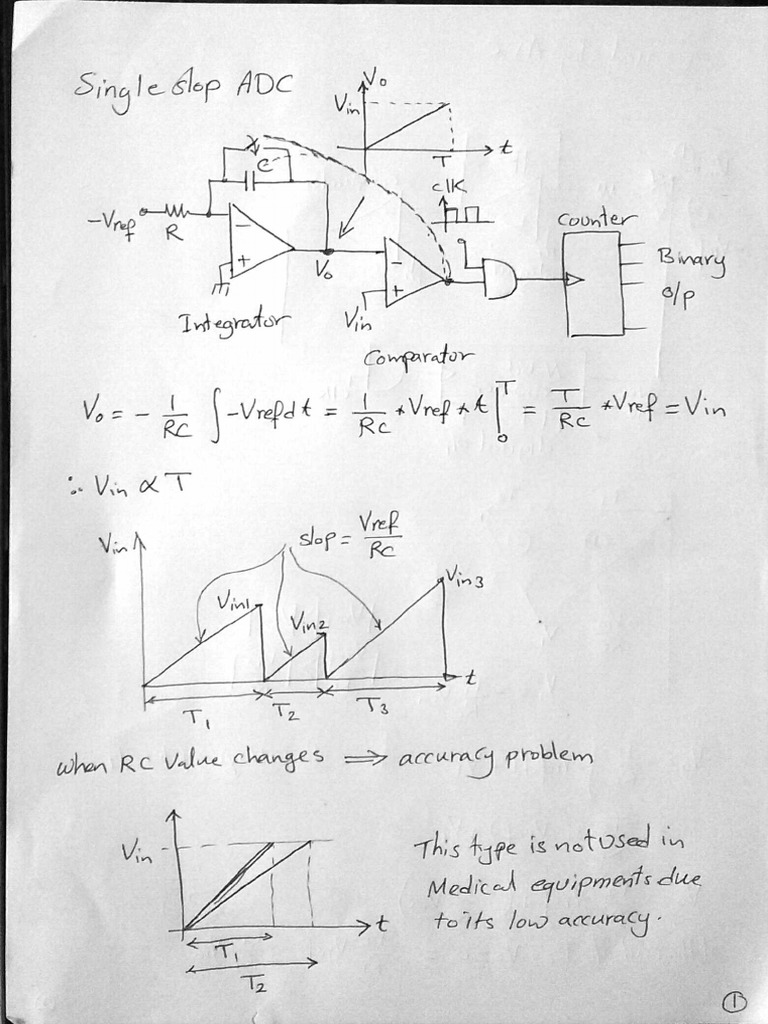 Single slop ADC
Vo
Vin
t
T
C
-Vref
R
clk
Counter
Binary
o/p
-
+
Vo
-
+
Vin
Integrator
Comparator
Vo = - 1/RC ∫ -Vref dt = 1/RC * Vref * t |₀ᵀ = T/RC * Vref = Vin
∴ Vin ∝ T
Vin
slop = Vref/RC
Vin1
Vin2
Vin3
t
T1
T2
T3
when RC value changes ⇒ accuracy problem
Vin
t
T1
T2
This type is not used in
Medical equipments due
to its low accuracy.
1